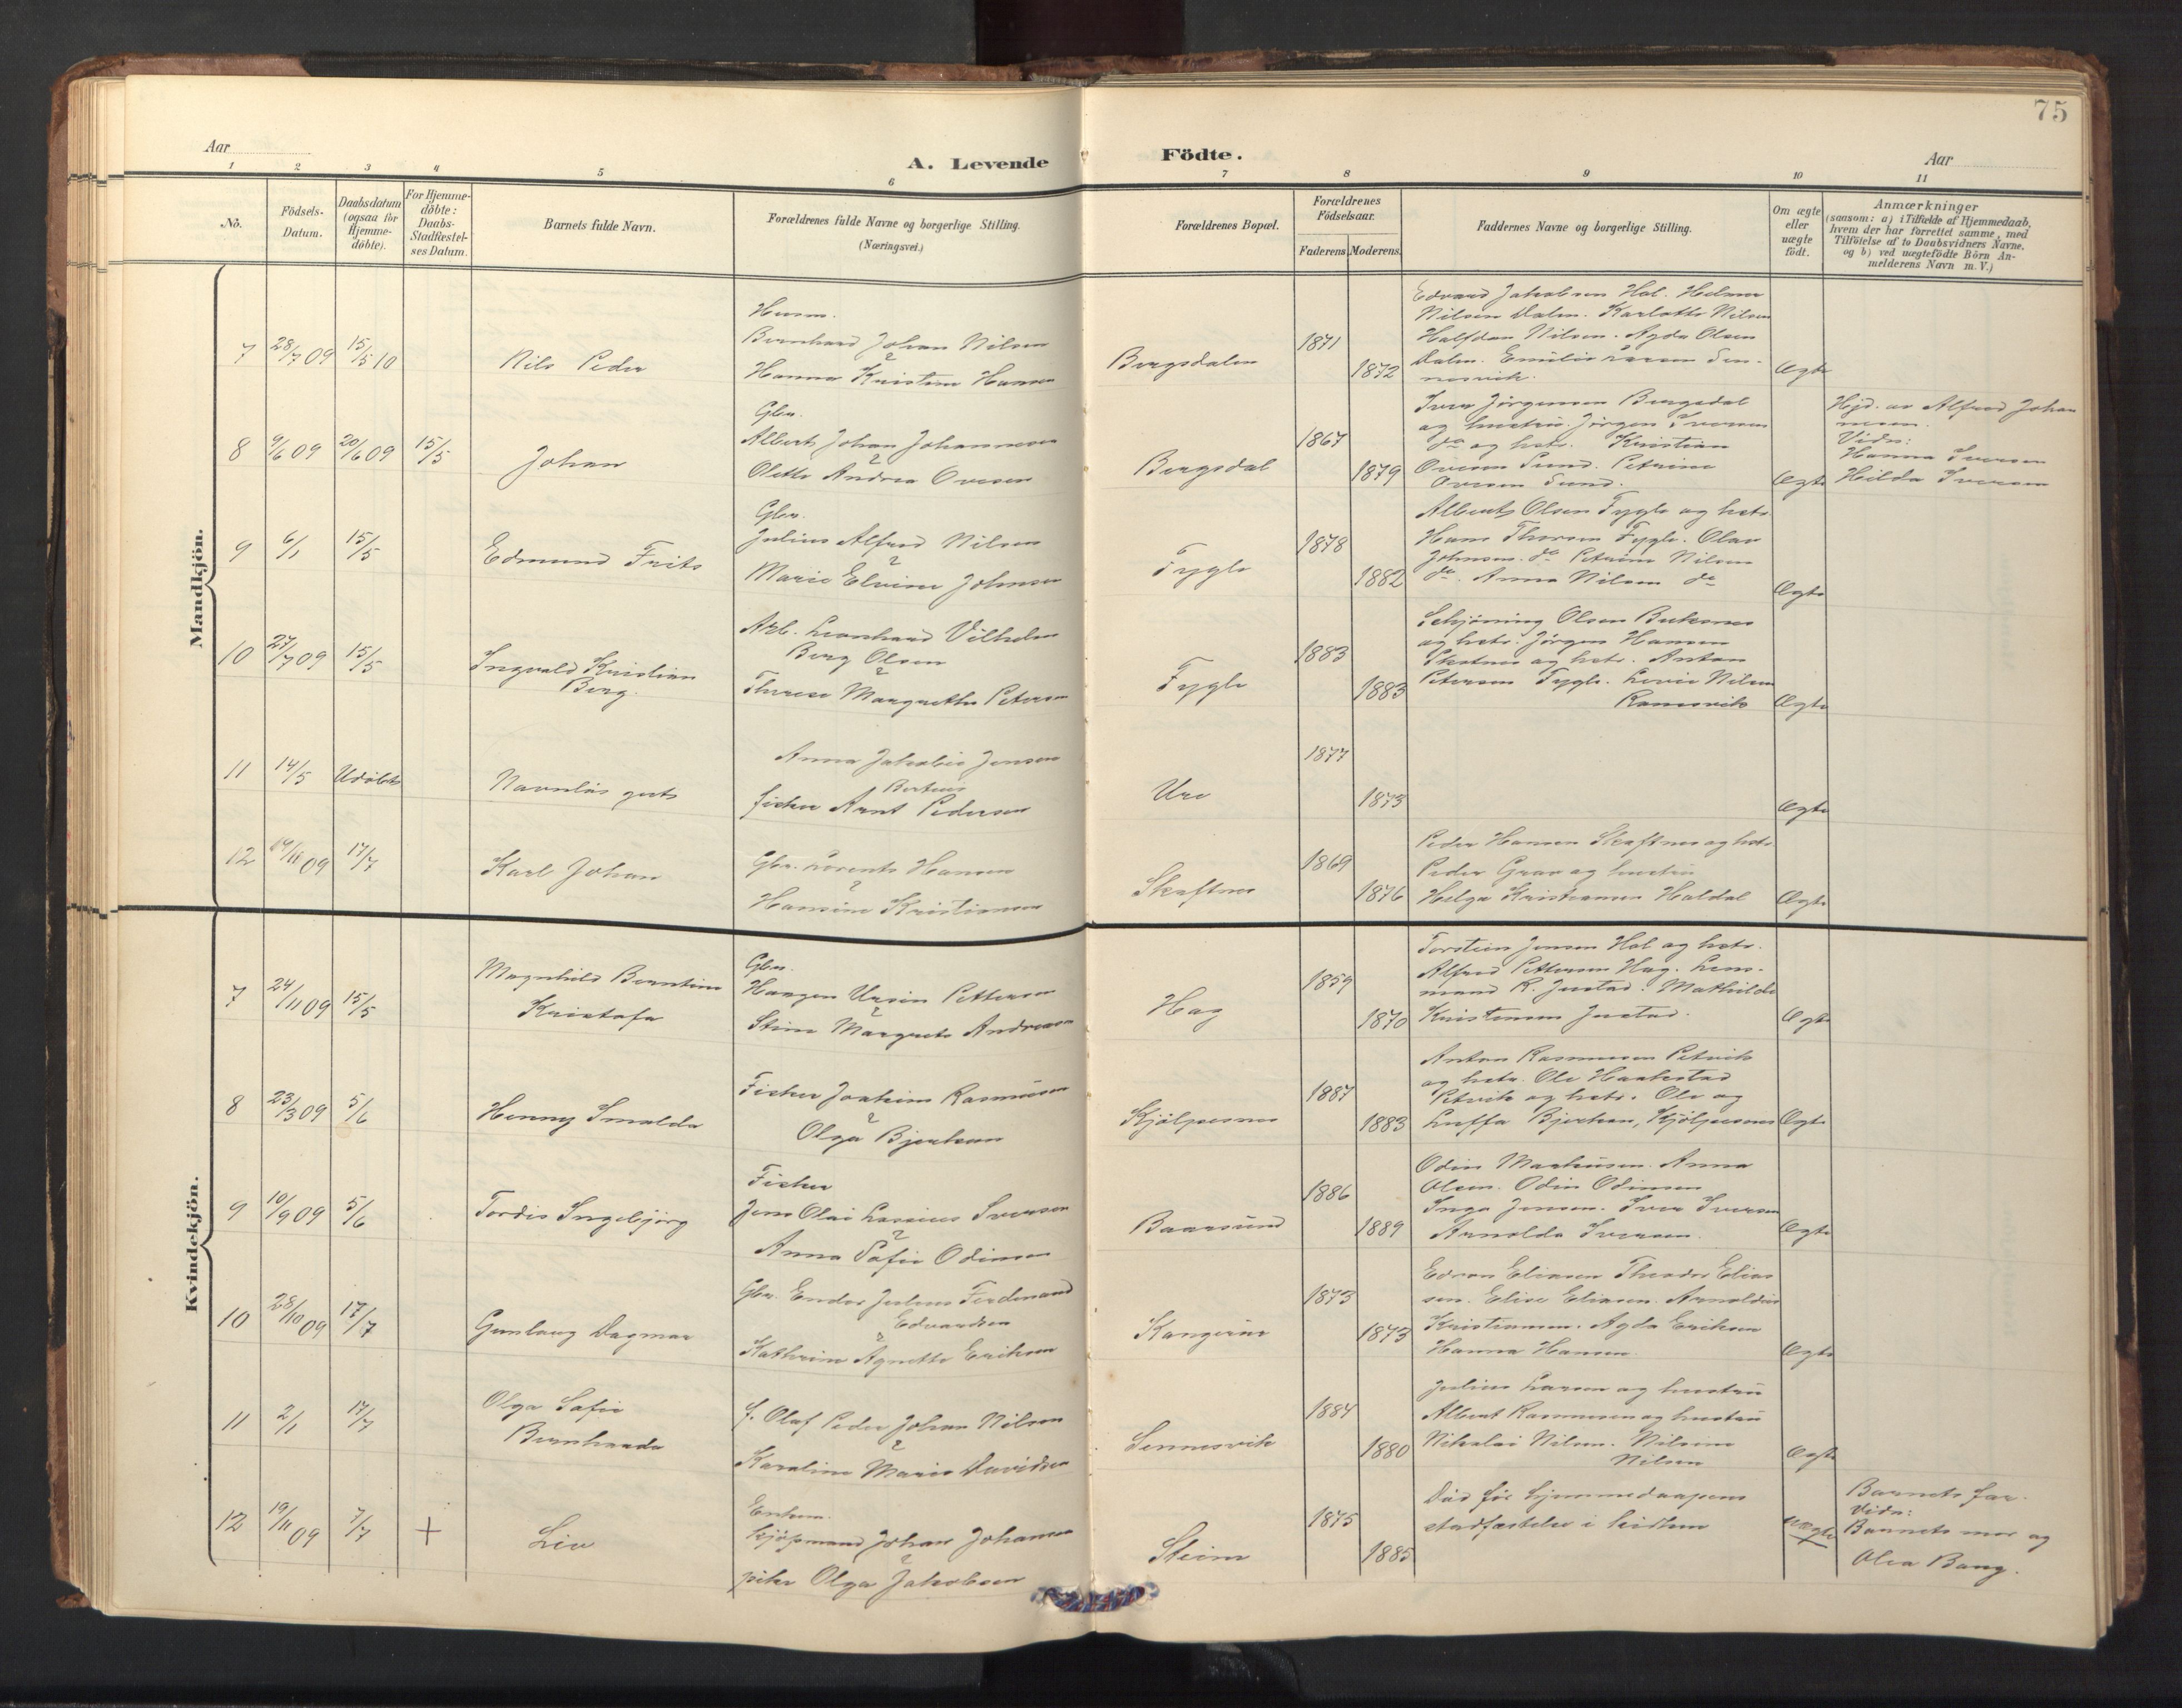 75
Aar
A. Levende
Födte.
Aar
1 2 3 4 5 6 7 8 9 10 11
No.
Födsels-
Datum.
Daabsdatum
(ogsaa for
Hjemme-
döbte).
For Hjemme-
döbte:
Daabs-
Stadfæstel-
ses Datum.
Barnets fulde Navn.
Forældrenes fulde Navne og borgerlige Stilling.
(Næringsvei.)
Forældrenes Bopæl.
Forældrenes
Födselsaar.
Faderens. Moderens.
Faddernes Navne og borgerlige Stilling.
Om ægte
eller
uægte
födt.
Anmærkninger
(saasom: a) i Tilfælde af Hjemmedaab,
hvem der har forrettet samme, med
Tilföielse af to Daabsvidners Navne.
og b) ved uægtefödte Börn An-
melderens Navn m. V.)
Mandkjön.
7
28/7 09
15/5 10
Nils Peder
Husm.
Bernhard Johan Nilsen
Hanna Kristine Hansen
Bergsdalen
1871
1872
Edvard Jakobsen Hol. Helmer
Nilsen Dalen. Karlotte Nilsen
Halfdan Nilsen. Agda Olsen
Dalen. Emilie Larsen Sen-
nesvik.
Ægte
8
9/6 09
20/6 09
15/5
Johan
Gbr.
Albert Johan Johannesen
Olette Andrea Ovesen
Bergsdal
1867
1879
Iver Jörgensen Bergsdal
og hustru. Jörgen Iversen
do og hstr. Kristian
Ovesen Sund. Petrine
Ovesen Sund.
Ægte
Hjd. av Alfred Johan
nesen.
Vidn:
Hanna Iversen
Hilda Iversen
9
6/1
15/5
Edmund Frits
Gbr.
Julius Alfred Nilsen
Marie Elvine Johnsen
Fygle
1878
1882
Albert Olsen Fygle og hstr.
Hans Thorsen Fygle. Olav
Johnsen do Petrine Nilsen
do. Anna Nilsen do
Ægte
10
27/7 09
15/5
Ingvald Kristian
Berg.
Arb. Leonhard Vilhelm
Berg Olsen
Therese Margrethe Petersen
Fygle
1883
1883
Schjöning Olsen Buksnes
og hstr. Jörgen Hansen
Skotnes og hstr. Anton
Petersen Fygle. Lovise Nilsen
Ramsvik
Ægte
11
14/5
Udöbt
Navnlös gut
Anna Jakobie Jensen
Berteus
fisker Arnt Pedersen
Ure
1877
1873
Ægte
12
14/11 09
17/7
Karl Johan
Gbr. Lorents Hansen
Hansine Kristiansen
Skaftnes
1869
1876
Peder Hansen Skaftnes og hstr.
Peder Grav og hustru
Helga Kristiansen Haldal
Ægte
Kvindekjön.
7
24/11 09
15/5
Magnhild Berntine
Kristofa
Gbr.
Haagen Ursin Pettersen
Stina Margrete Andreasen
Hag
1859
1870
Torstein Jensen Hol og hstr.
Alfred Pettersen Hag. Lens-
mand R. Justad. Mathilde
Kristensen Justad.
Ægte
8
23/3 09
5/6
Henny Imelda
Fisker Joakim Rasmussen
Olga Bjerkan
Kjölpesnes
1887
1883
Anton Rasmussen Petvik
og hstr. Ole Haakstad
Petvik og hstr. Ole og
Luffa Bjerkan, Kjölpesnes
Ægte
9
10/9 09
5/6
Tordis Ingebjörg
Fisker
Jens Olai Iversen
Anna Sofie Odinsen
Baarsund
1886
1889
Odin Markusen. Anna
Olsen. Odin Odinsen
Inga Jensen. Iver Iversen
Arnolda Iversen.
Ægte
10
28/10 09
17/7
Gunlaug Dagmar
Gbr. Endor Julius Ferdinand
Edvardsen
Kathrine Agnette Eriksen
Kangerur
1873
1873
Edvan Eliasen Theodor Elias
sen. Elise Eliasen. Arnoldus
Kristiansen. Agda Eriksen
Hanna Hansen.
Ægte
11
2/1
17/7
Olga Sofie
Bernharda
f. Olaf Peder Johan Nilsen
Karoline Marie Davidsen
Sennesvik
1884
1880
Julius Larsen og hustru
Albert Rasmussen og hustru
Nikolai Nilsen. Nilsine
Nilsen
Ægte
12
19/11 09
7/7
+
Liv
Enkem.
kjöpmand Johan Johansen
pike Olga Jakobsen
Steine
1875
1885
Död för hjemmedaapens
stadfæstelse i kirken
Uægte
Barnets far.
Vidn:
Barnets mor og
Olea Bang.